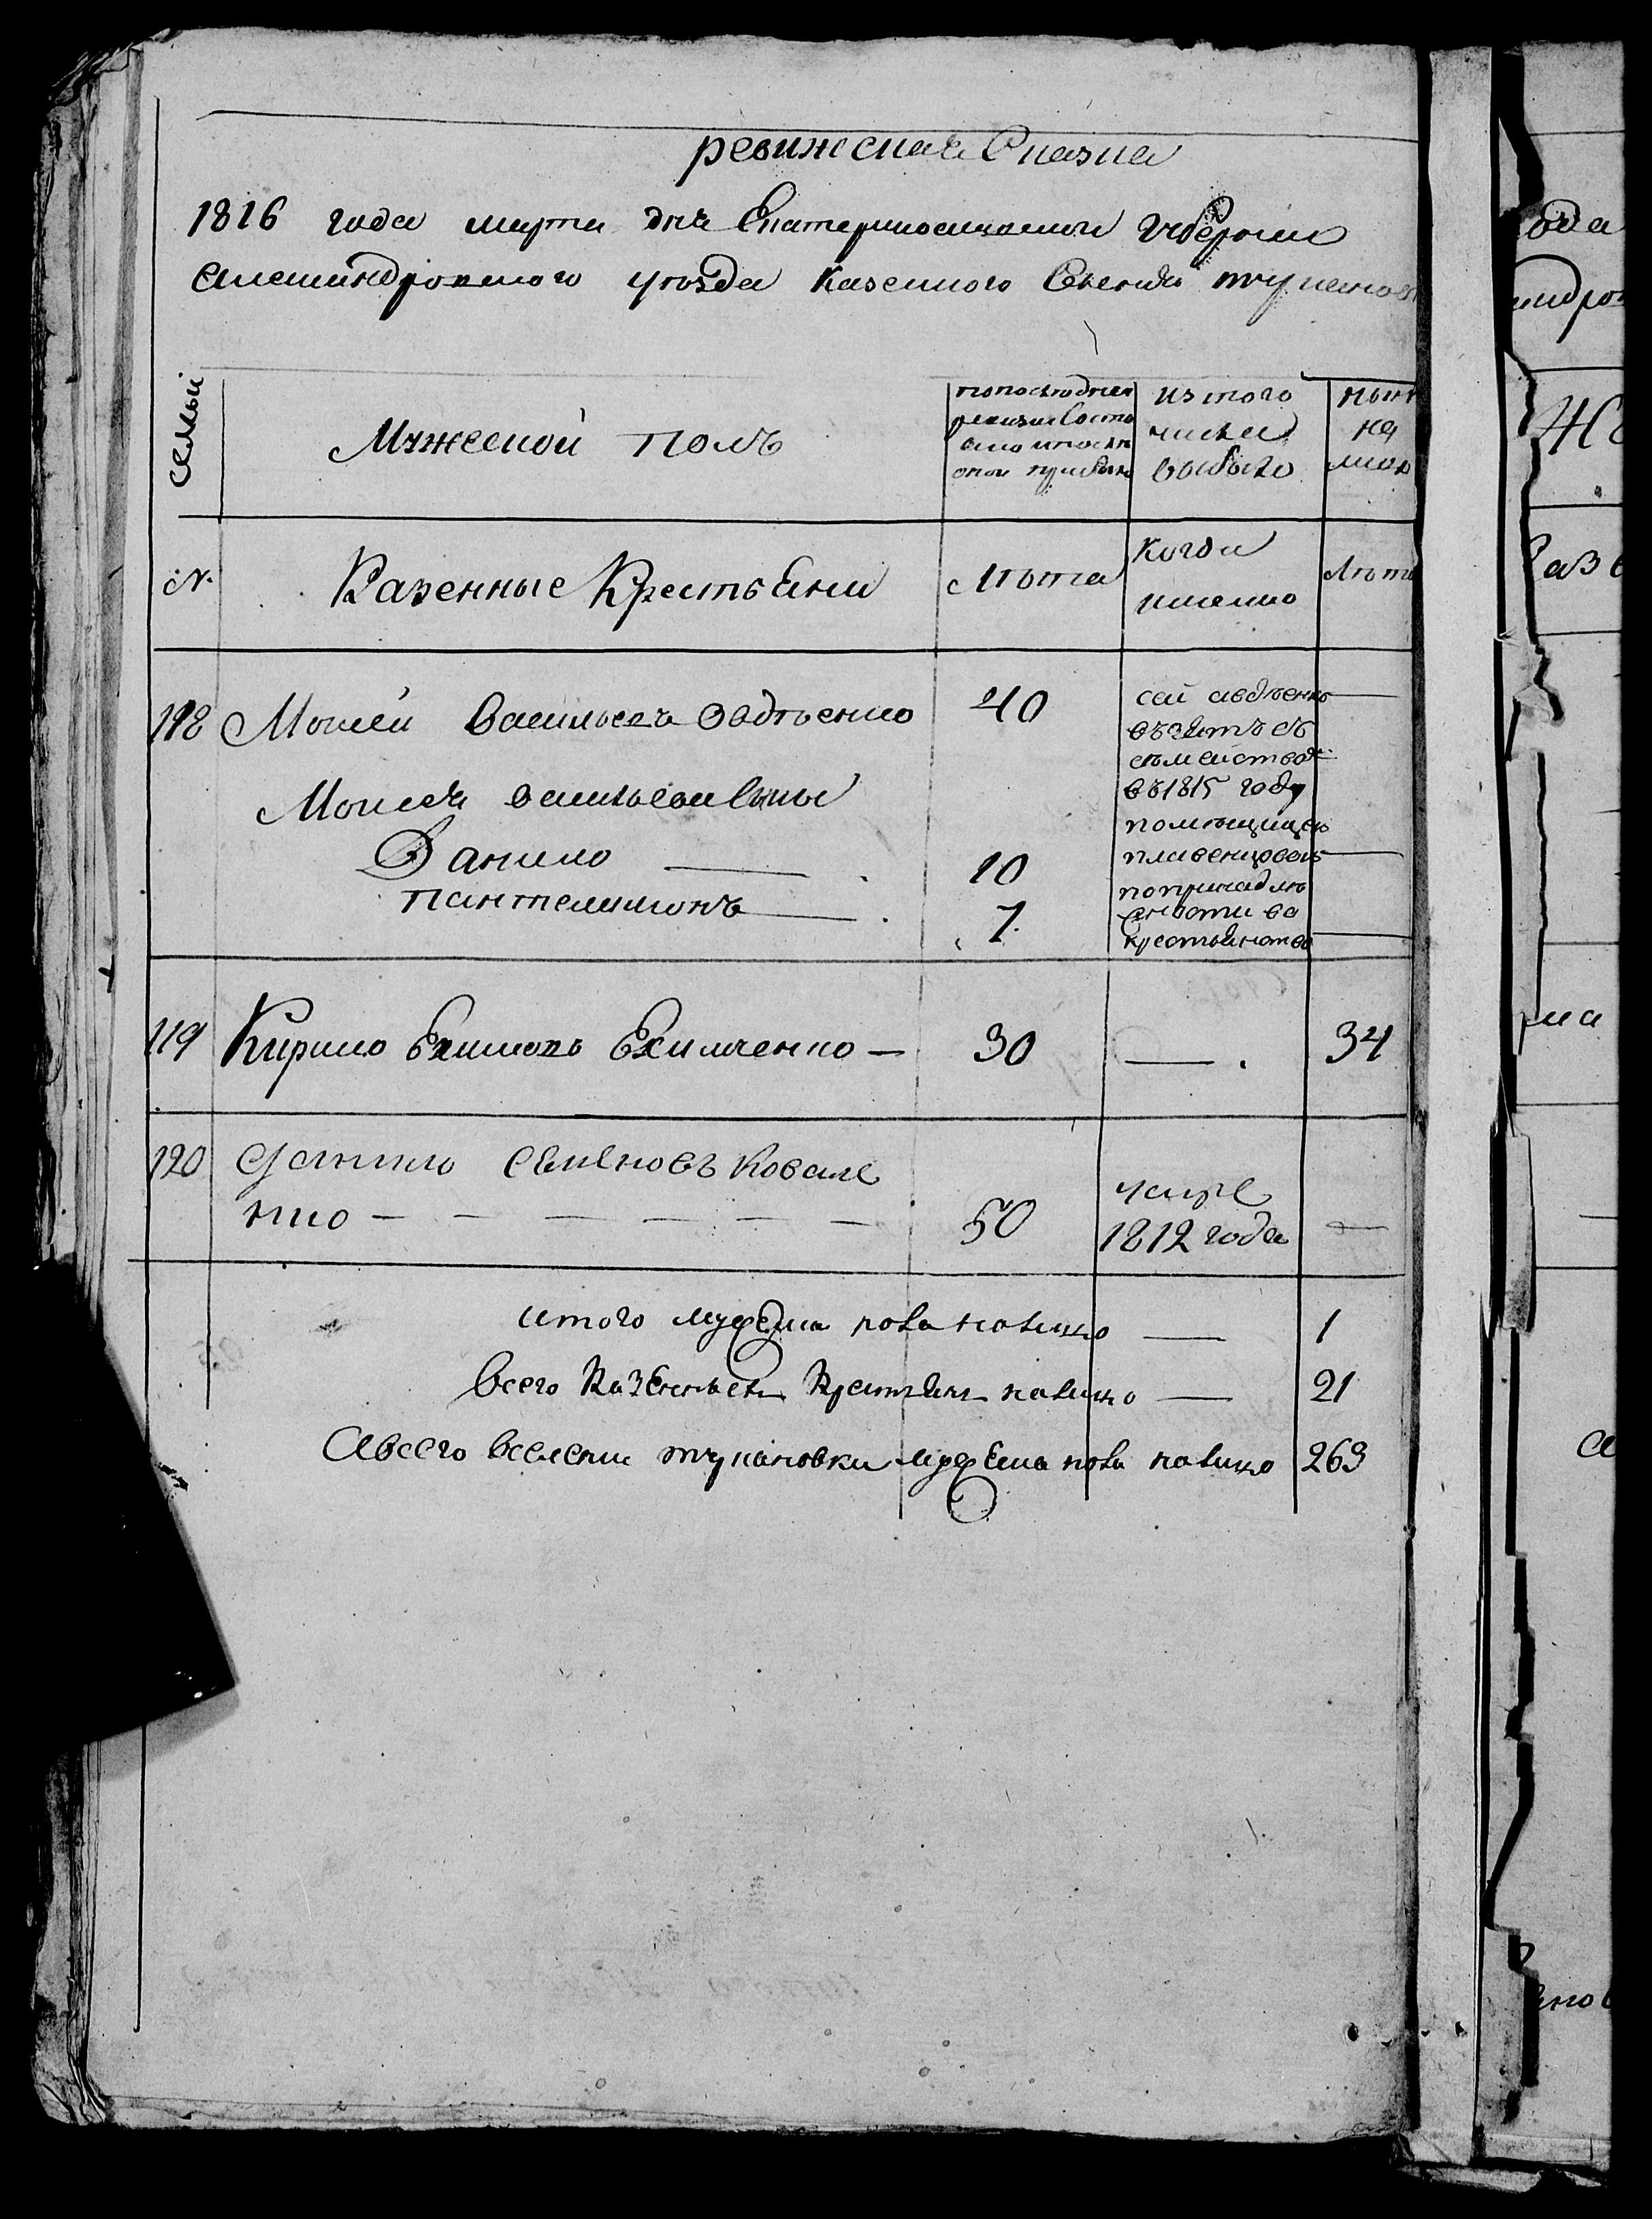 ревижская Сказка
1816 года марта дня Екатеринославской Губернии
Александровского уезда Казенного Селения тупановк
семьи
Мужеской полъ
попоследней
ревизии Состо
яло и после
оной прибыло
из того
числа
выбыло
ныне
на
лицо
№.
Казенные Крестьяни
Лѣта
Когда
именно
Лѣта
118 Мойсей Васильевъ Овдѣенко 40
сей авдѣенко
възятъ съ
семействомъ
въ 1815 году
помѣщицею
попринадлѣ
жности во
крестьянство
Мойсея васильева Сыны
Данило 10
пантелимонъ 7
119 Кирило Екимовъ Екименко — 30 — . 34
120 Семеновъ Ковале
нко — — — — — — 50 умре 1812 года —
итого мужеска пола налицо — 1
Всего Казенныхъ Крестьян налицо — 21
Авсего вселении тупановки мужеска пола налицо 263
ода
андров
Каз